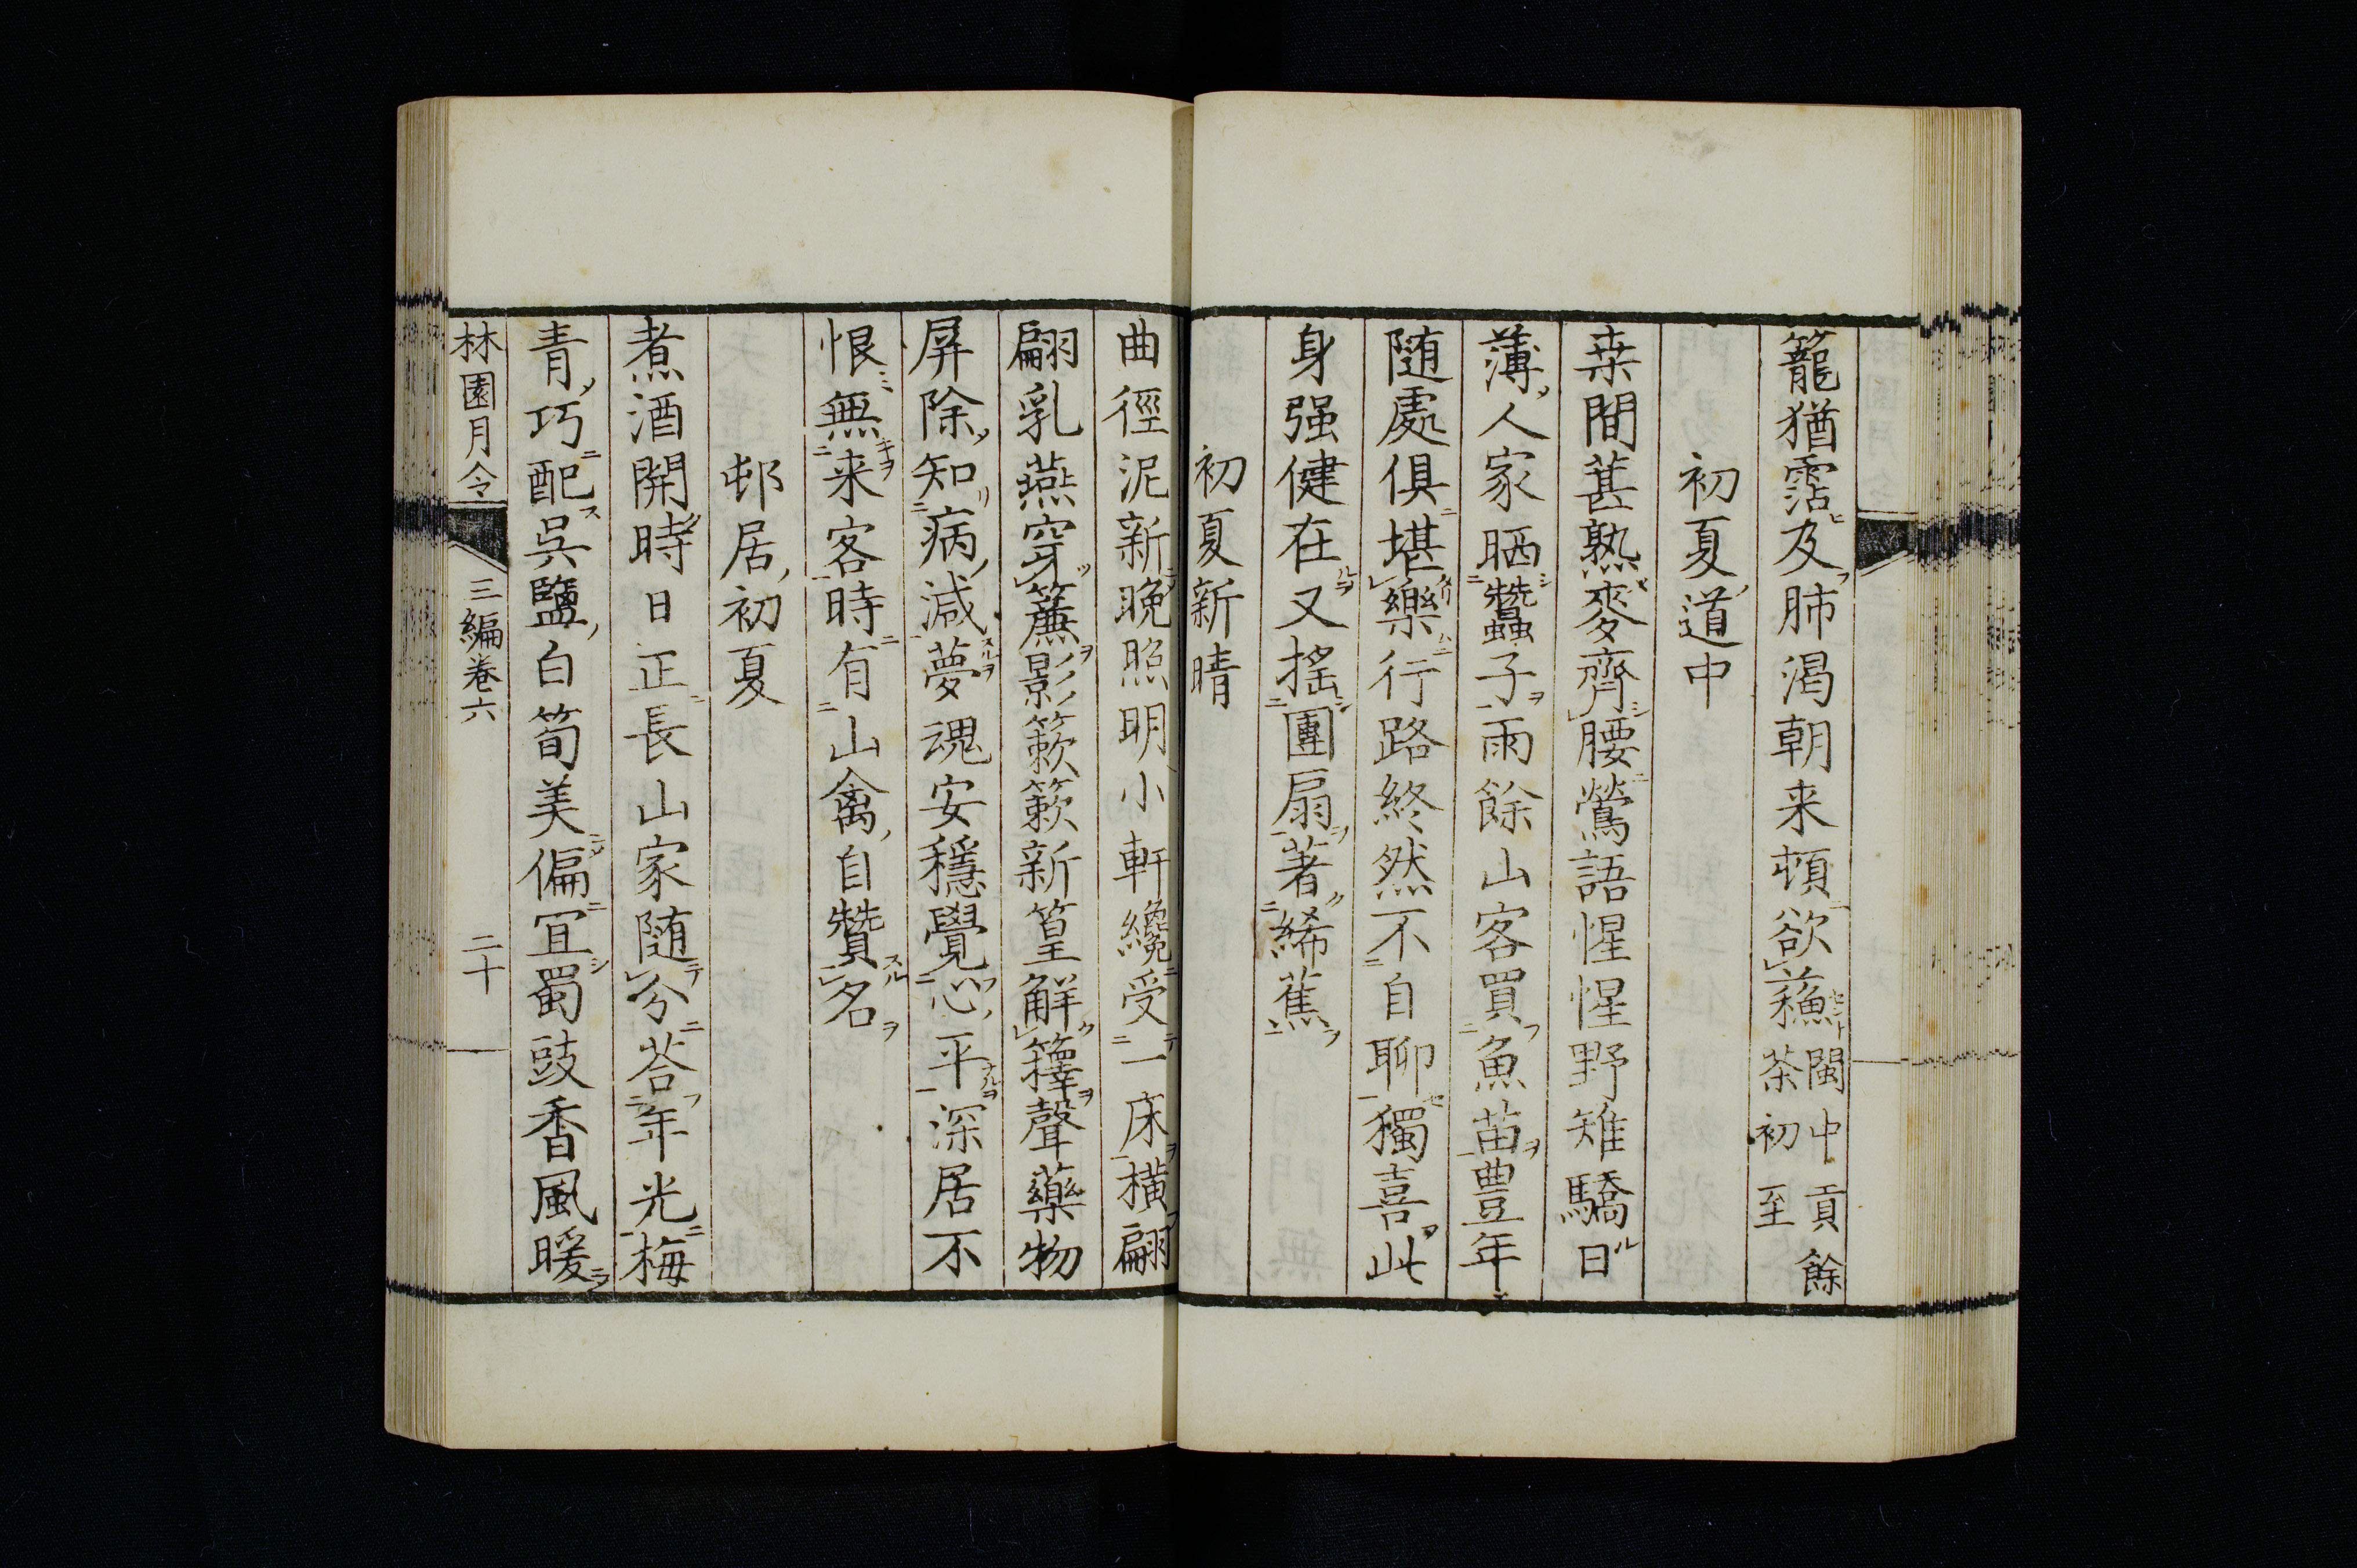 籠猶霑及肺渴朝来頓欲蘓閩中貢餘
茶初至
初夏道中
桒間葚熟麥齊腰鶯語惺惺野雉驕日
薄人家晒蠶子雨餘山客買魚苗豊年
随處俱堪樂行路終然不自聊獨喜此
身强健在又揺團扇著絺蕉
初夏新晴
曲徑泥新晚照明小軒纔受一床横翩
翩乳燕穿簾影簌簌新篁解籜聲藥物
屏除知病減夢魂安穩覺心平深居不
恨無来客時有山禽自贊名
邨居初夏
煮酒開時日正長山家随分荅年光梅
青巧配吳鹽白筍美偏冝蜀豉香風暖
林園月令
三編卷六
二十